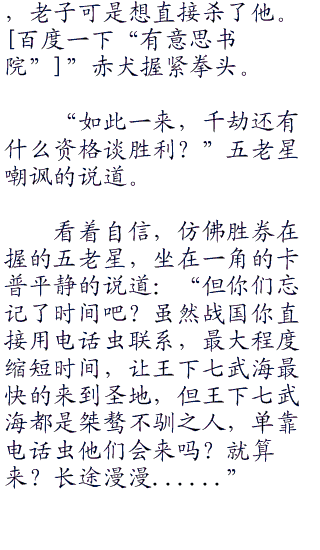 ，老子可是想直接杀了他。
[百度一下“有意思书
院”]”赤犬握紧拳头。
“如此一来，千劫还有
什么资格谈胜利？”五老星
嘲讽的说道。
看着自信，仿佛胜券在
握的五老星，坐在一角的卡
普平静的说道：“但你们忘
记了时间吧？虽然战国你直
接用电话虫联系，最大程度
缩短时间，让王下七武海最
快的来到圣地，但王下七武
海都是桀骜不驯之人，单靠
电话虫他们会来吗？就算
来？长途漫漫......”